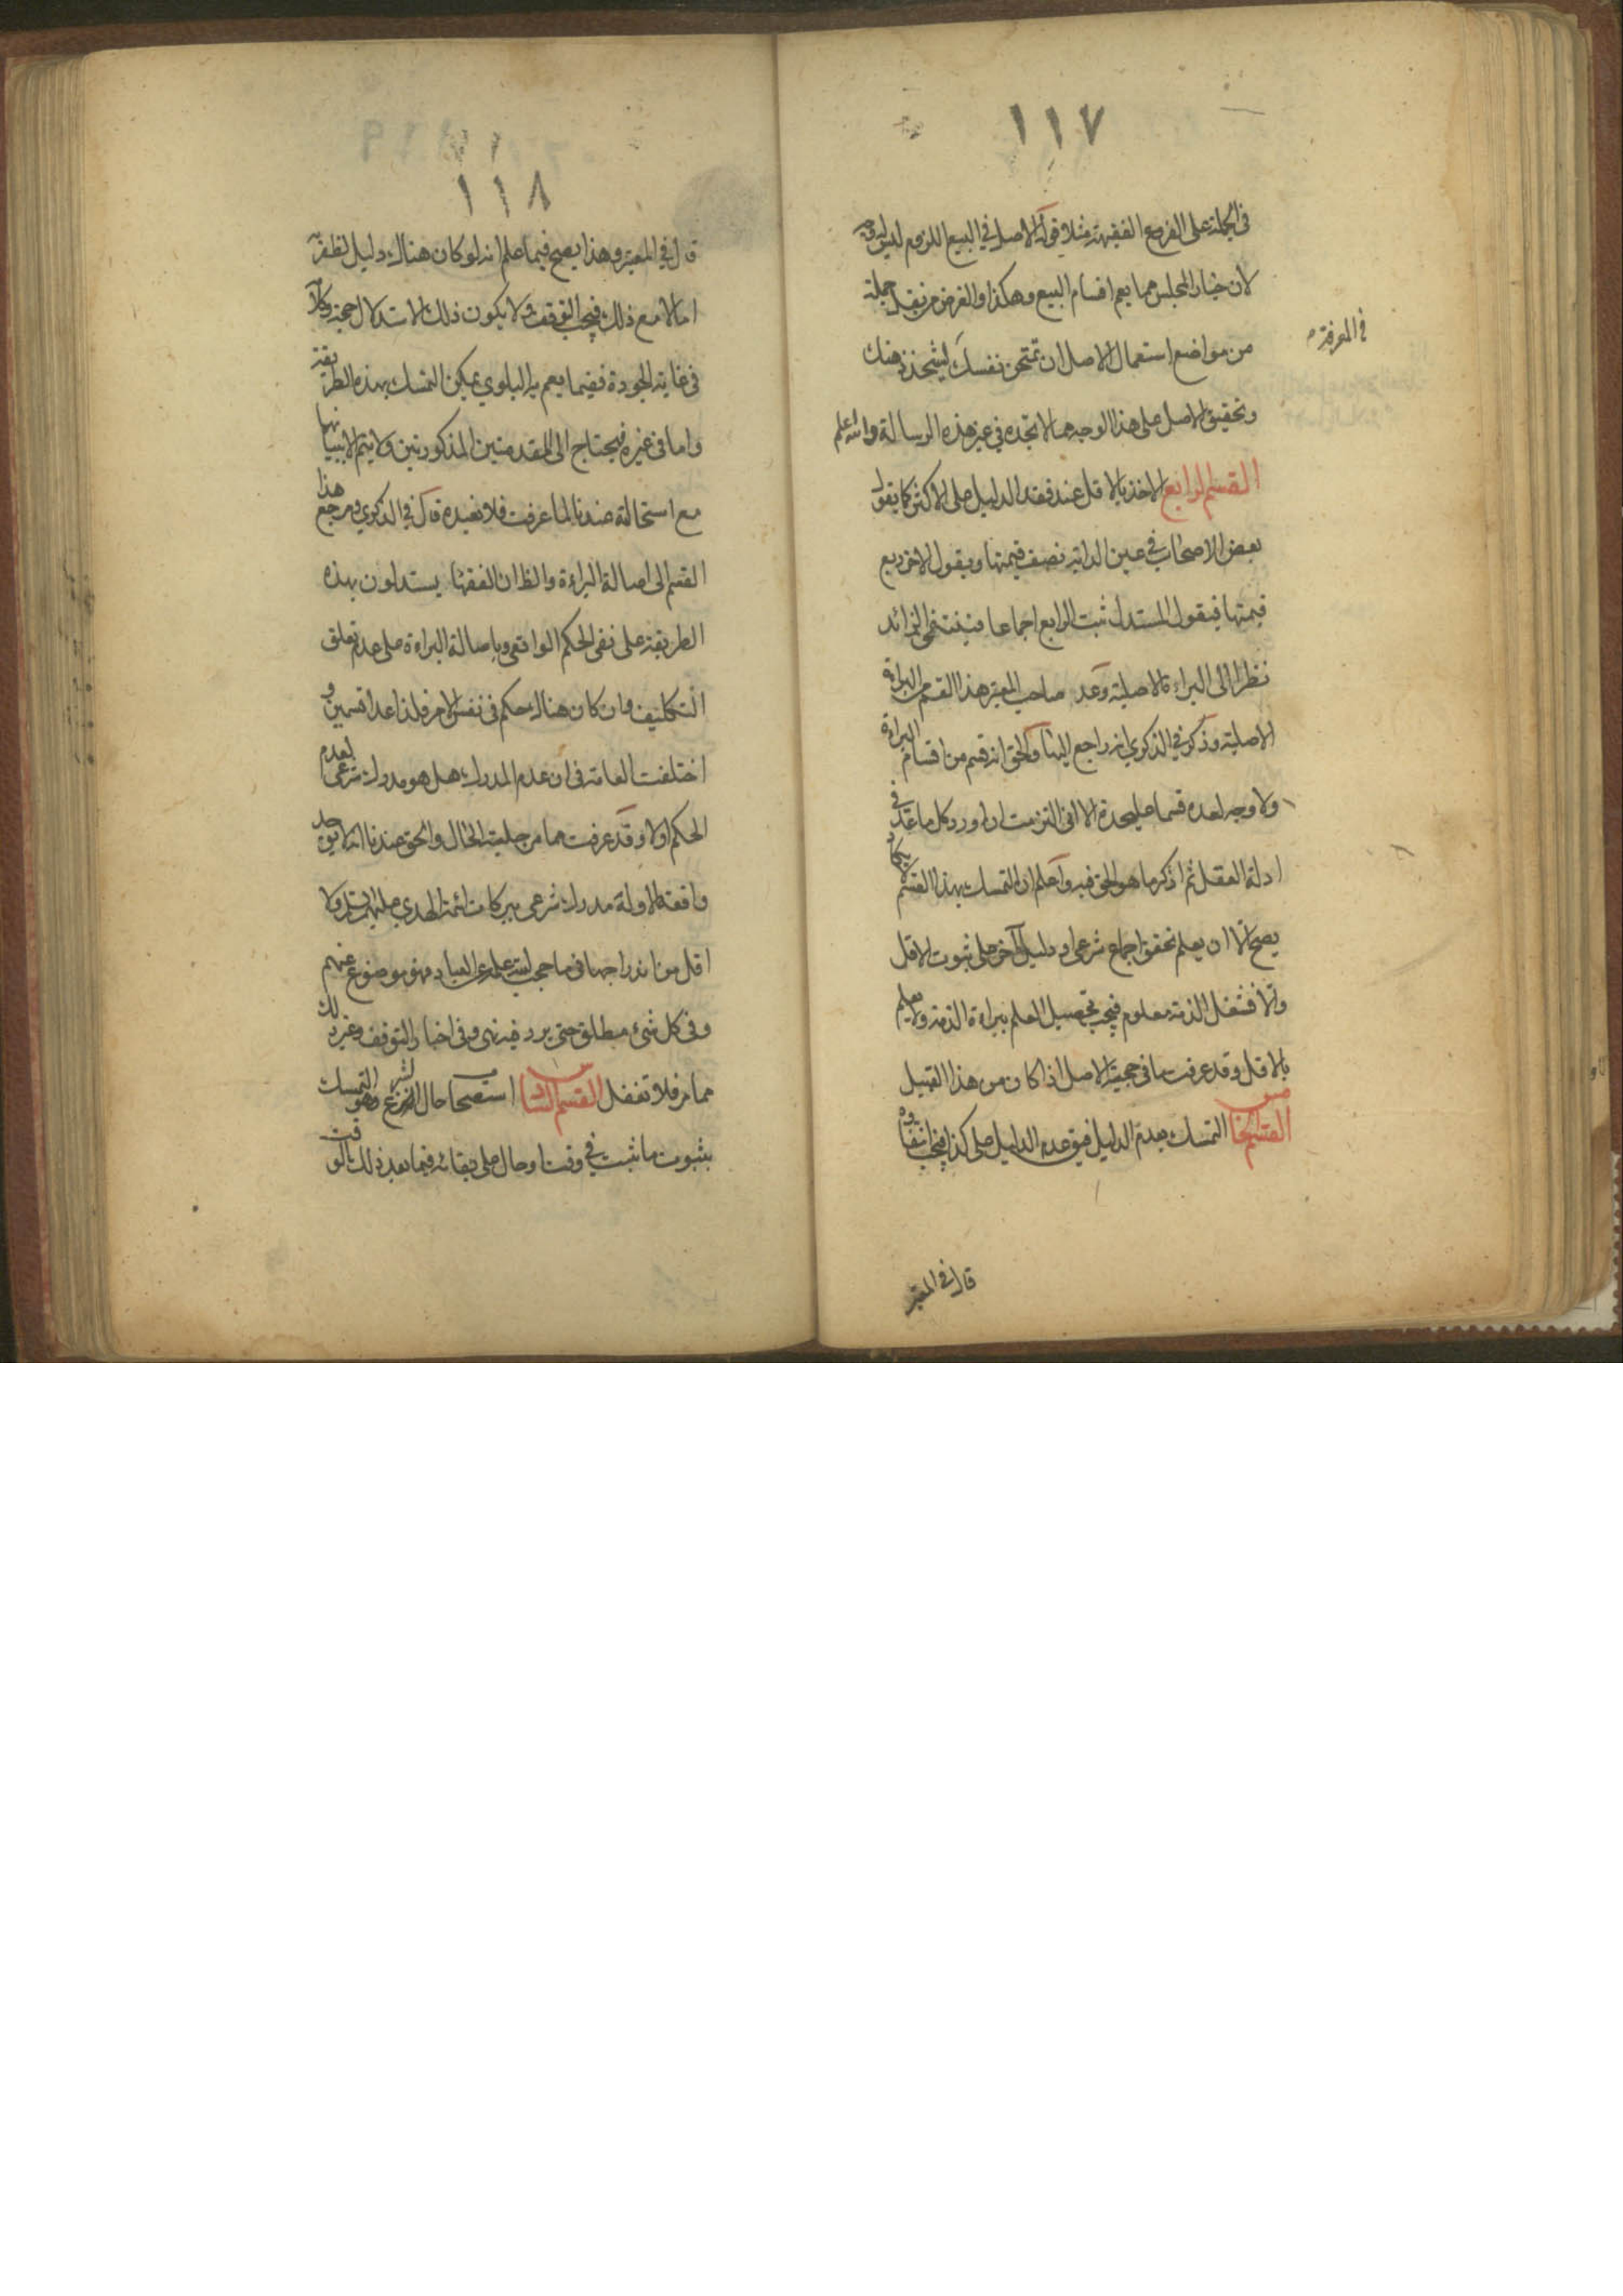 ١١٧
في الجملة على الفروع الفقهية مثلا قولك الاصل في البيع اللزوم ليس له وجه
لان خيار المجلس مما يعم اقسام البيع وهكذا والغرض من نقل جملة
من مواضع استعمال الاصل ان تمتحن نفسك ليشحذ ذهنك
في المعرفة
وتحقيق الاصل على هذا الوجه مما لا تجده في غير هذه الرسالة والله اعلم
القسم الرابع الاخذ بالاقل عند فقد الدليل على الاكثر كما يقول
بعض الاصحاب في عين الدابة نصف قيمتها ويقول الاخر ربع
قيمتها فيقول المستدل ثبت الربع اجماعا فينتفي الزائد
نظرا الى البراءة الاصلية وعد صاحب المعتبر هذا القسم من البراءة
الاصلية وذكر في الذكرى انه راجع اليها والحق انه قسم من اقسام البراءة
ولا وجه لعده قسما عليحدة الا اني التزمت ان اورد كل ما عد في
ادلة العقل ثم اذكر ما هو الحق فيه واعلم ان التمسك بهذا القسم لا يكاد
يصح الا ان يعلم تحقق اجماع شرعي او دليل آخر على ثبوت الاقل
والا فشغل الذمة معلوم فيجب تحصيل العلم ببراءة الذمة ولا يعلم
بالاقل وقد عرفت ما في حجية الاصل اذا كان من هذا القبيل
القسم الخامس التمسك بعدم الدليل فيق عدم الدليل على كذا فيجب انتفاؤه
قال في المعتبر
١١٨
قال في المعتبر وهذا يصح فيما علم انه لو كان هناك دليل لظفر به
اما لا مع ذلك فيجب التوقف ولا يكون ذلك الاستدلال حجة وكلامه
في غاية الجودة ففيما يعم به البلوى يمكن التمسك بهذه الطريقة
واما في غيره فيحتاج الى المقدمتين المذكورتين ولا يتم الا ببيانهما
مع استحالته عندنا لما عرفت فلا نعيده قال في الذكرى ومرجع هذا
القسم الى اصالة البراءة والظ ان الفقهاء يستدلون بهذه
الطريقة على نفي الحكم الواقعي وباصالة البراءة على عدم تعلق
التكليف وان كان هناك حكم في نفس الامر فلذا عدا قسمين و
اختلفت العامة في ان عدم المدرك هل هو مدرك شرعي لعدم
الحكم او لا وقد عرفت مما مر جلية الحال والحق عندنا انه لا يوجد
واقعة الا وله مدرك شرعي ببركات ائمة الهدى عليهم السلام ولا
اقل من اندراجها في ما حجب الله علمه عن العباد فهو موضوع عنهم
وفي كل شيء مطلق حتى يرد فيه نهي وفي اخبار التوقف وغير ذلك
مما مر فلا تغفل القسم السادس استصحاب حال الشرع وهو التمسك
بثبوت ما ثبت في وقت او حال على بقائه فيما بعد ذلك الوقت